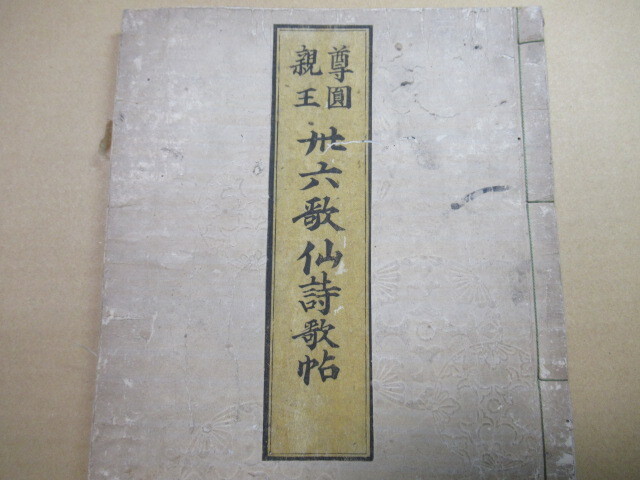 尊圓
親王
卅六歌仙詩歌帖